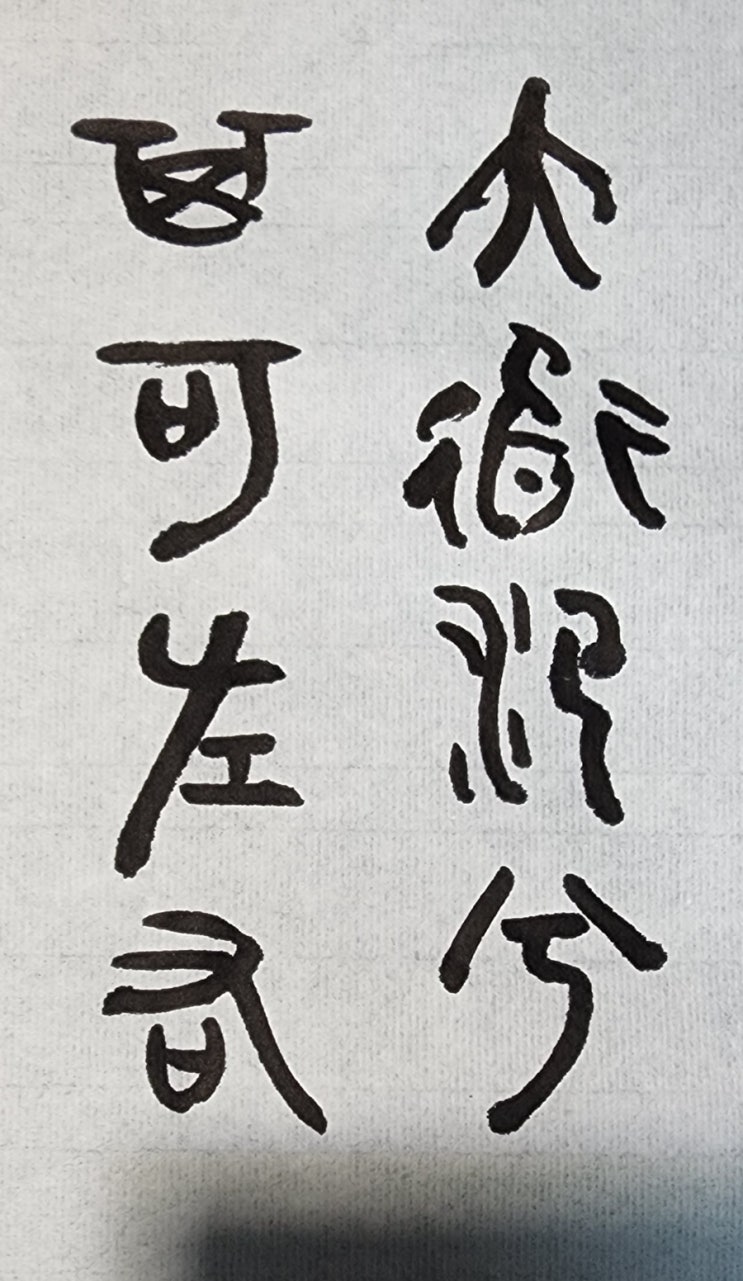 大道氾兮
其可左右